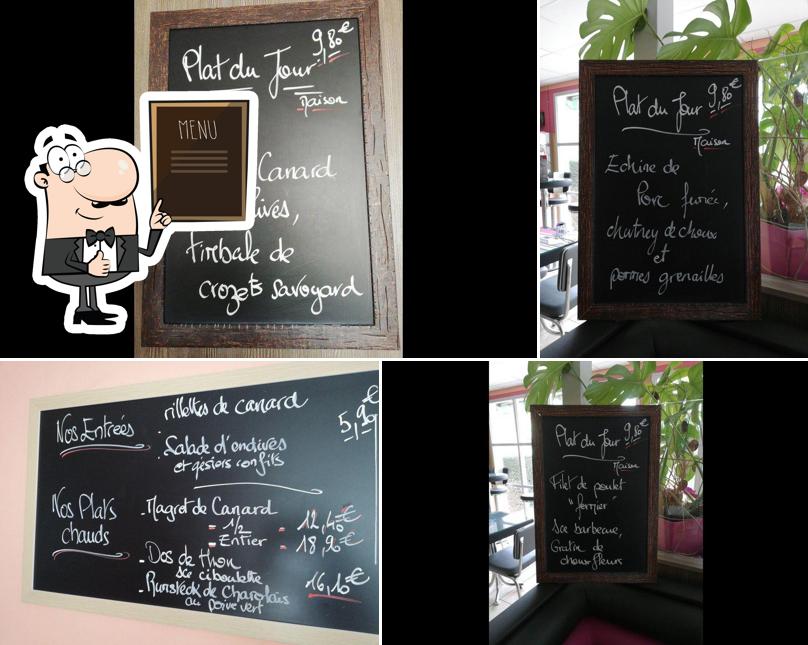 Plat du Jour 9,80€
Maison
MENU
Canard
timbale de
crozets savoyard
Plat du Jour 9,80€
Maison
Echine de
Porc fumée,
chartrey de choux
et
pommes grenailles
rillettes de canard
Nos Entrées
5,90€
Salade d'endives
et gésiers confits
Nos Plats
chauds
- Magret de Canard
= 1/2 = 12,40€
= Entier - 18,90€
- Dos de thon
sce ciboulette
16,10€
- Rumsteck de Charolais
au poivre vert
Plat du Jour 9,80€
Maison
Filet de poulet
"fermier"
Sce barbecue,
Gratin de
choux fleurs